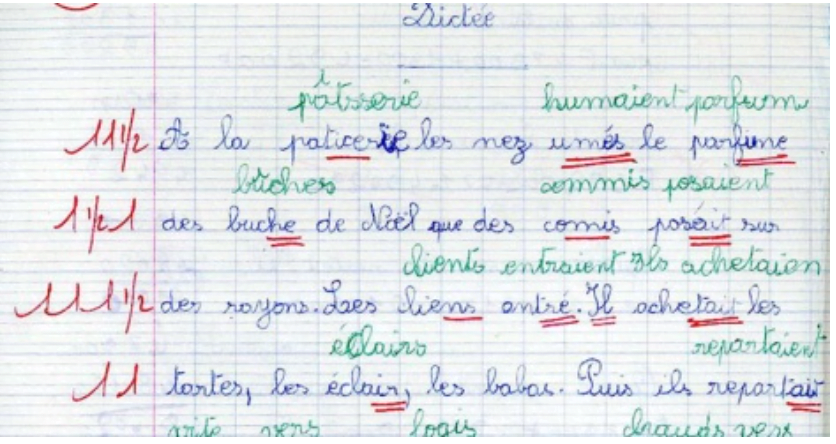 Dictée
pâtisserie humaient parfum
11 1/2 A la paticerie les nez umés le parfume
bûches commis posaient
1 1/2 1 des buche de Noël que des comis posait sur
clients entraient Ils achetaien
1 1 1 1/2 des rayons. Les cliens entré. Il achetait les
éclairs repartaient
1 1 tartes, les éclair, les babas. Puis ils repartait
vite vers logis chauds vers